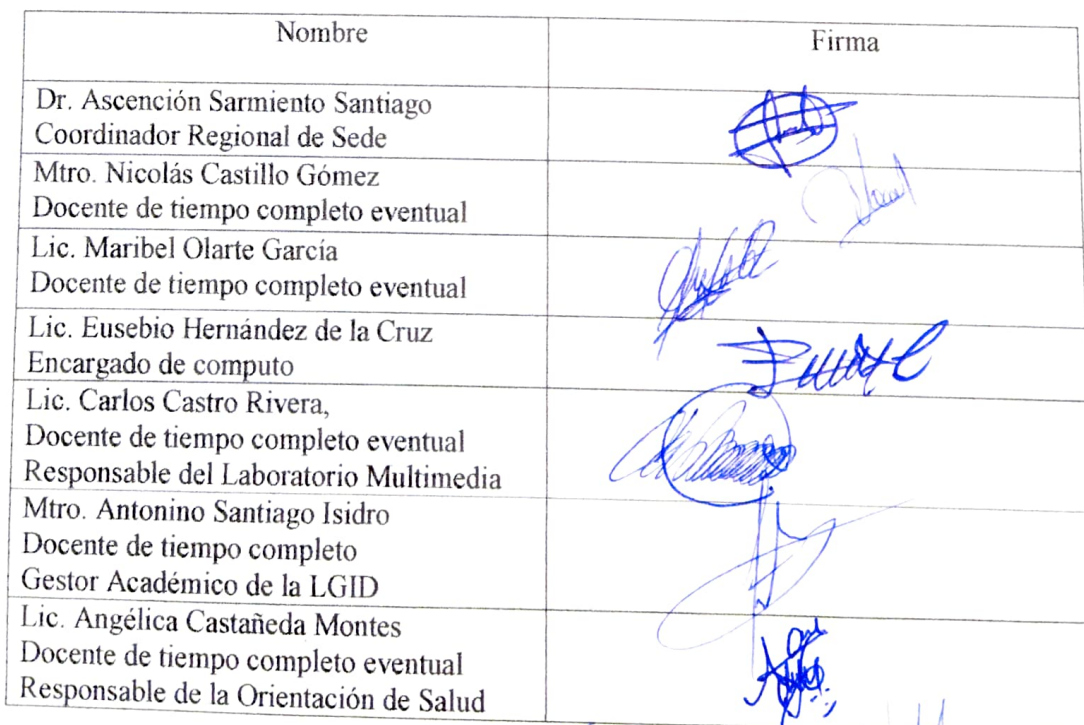 Nombre
Firma
Dr. Ascención Sarmiento Santiago
Coordinador Regional de Sede
Mtro. Nicolás Castillo Gómez
Docente de tiempo completo eventual
Lic. Maribel Olarte García
Docente de tiempo completo eventual
Lic. Eusebio Hernández de la Cruz
Encargado de computo
Lic. Carlos Castro Rivera,
Docente de tiempo completo eventual
Responsable del Laboratorio Multimedia
Mtro. Antonino Santiago Isidro
Docente de tiempo completo
Gestor Académico de la LGID
Lic. Angélica Castañeda Montes
Docente de tiempo completo eventual
Responsable de la Orientación de Salud